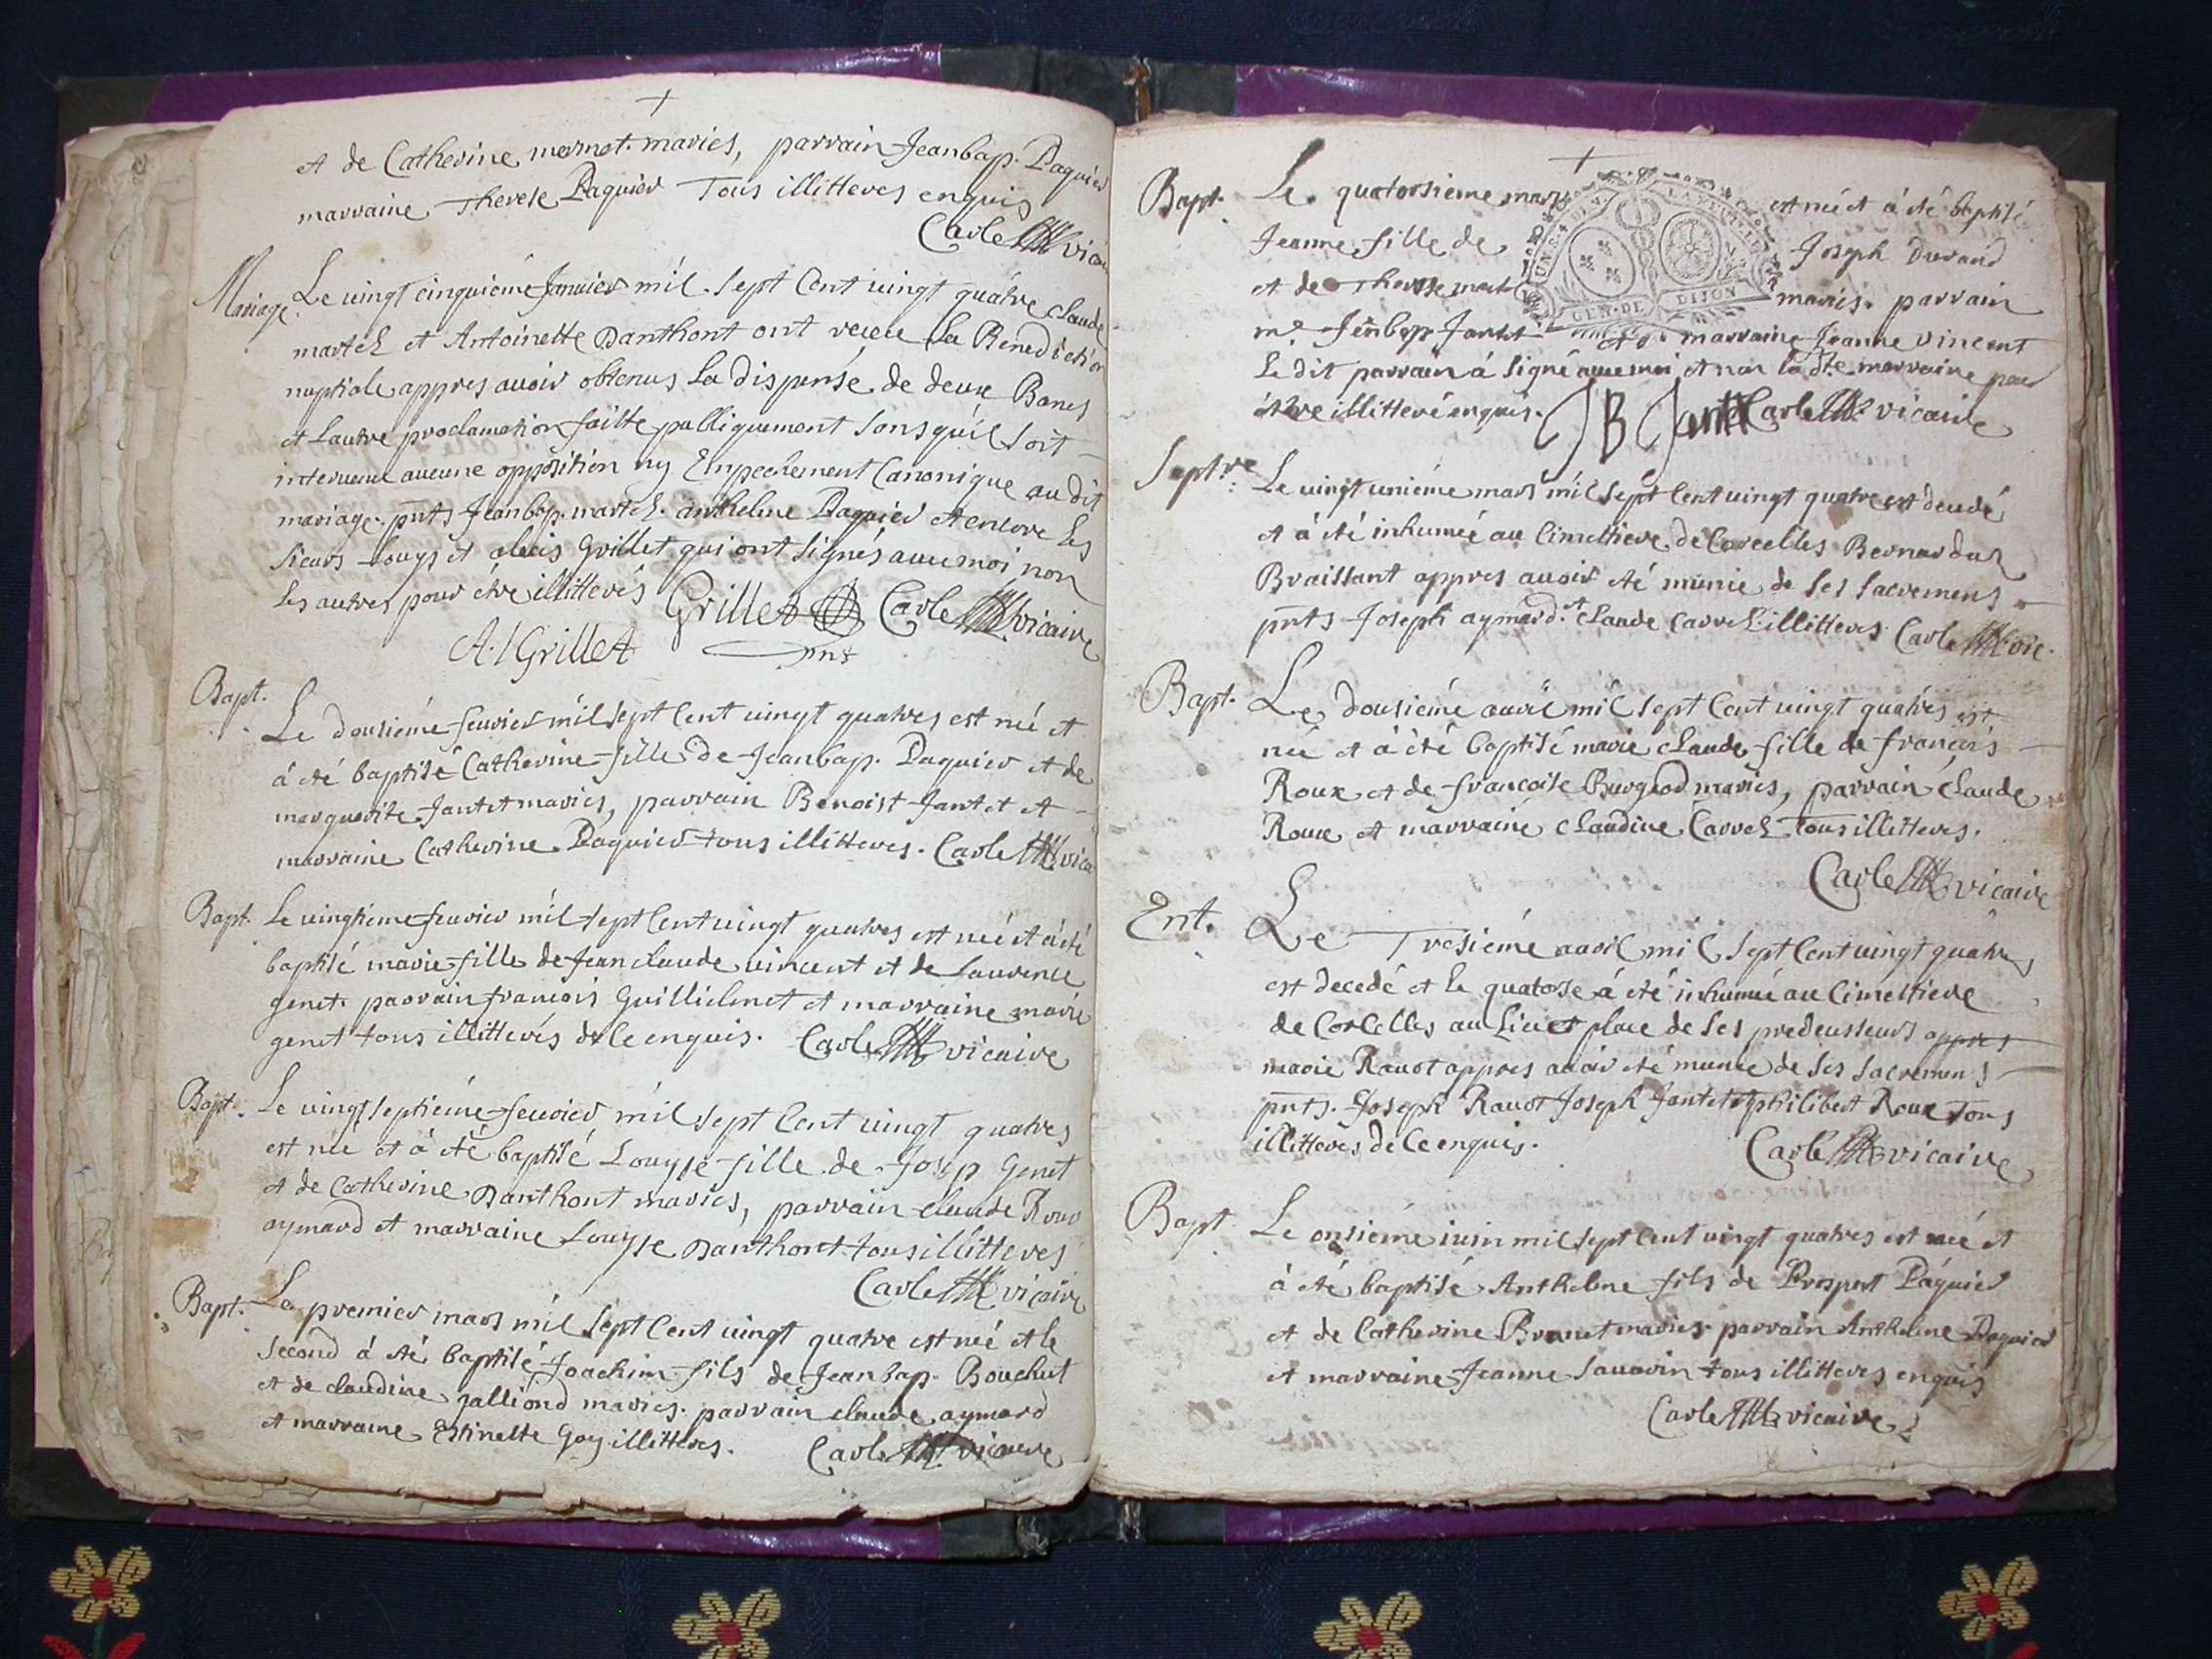 et de Catherine mermet mariés, parrain Jeanbap. Paquier
marraine Therese Paquier Tous illitteres enquis
Carle vicai
Mariage
Le vingt cinquiéme Januier mil sept Cent uingt quatre claude
martel et Antoinette Danthont ont receu La Benediction
nuptiale appres auoir obtenus La dispense de deux Bancs
et Lautre proclamation faitte publiquement sans quil soit
interuenu aucune opposition ny Enpechement Canonique au dit
mariage. pnts Jeanbap. martel. anthelme Paquier et encore les
sieurs Louys et alexis Grillet qui ont signés auec moi non
les autres pour étre illitterés Grillet Carle vicaire
A. l Grillet pnt
Bapt.
Le dousiéme feurier mil sept Cent uingt quatres est née et
à été baptisé Catherine fille de Jeanbap. Paquier et de
marguerite Jantet mariés, parrain Benoist Jantet et
marraine Catherine Paquier tous illitteres. Carle vica
Bapt. Le uingtieme feurier mil sept Cent uingt quatres est née et à été
baptisé marie fille de Jean claude uincent et de Laurence
genet. parrain francois Guillielmet et marraine marie
genet tous illitterés de ce enquis. Carle vicaire
Bapt. Le uingt septiéme feurier mil sept Cent uingt quatres
est née et à été baptisé Louyse fille de Josep Genet
et de Catherine Danthont mariés, parrain claude Roux
aymard et marraine Louyse Danthont tous illitteres
Carle vicaire
Bapt. Le premier mars mil sept Cent uingt quatre est né et le
second à été baptisé Joachim fils de Jeanbap. Bouchut
et de claudine jalliond mariés. parrain claude aymard
et marraine Estinette Goy illitteres. Carle vicaire
Bapt. Le quatorsieme mars est née et à été baptisé
Jeanne fille de Joseph Durand
et de Therese mariés. parrain
me Jeanbap Jantet et marraine Jeanne vincent
Le dit parrain à signé auec moi et non la dte marraine pour
étre illitteré enquis. J B Jantet Carle vicaire
Septre
Le uingt uniéme mars mil sept Cent uingt quatre est decedé
et à été inhumée au Cimettiere de Corcelles Bernardaz
Braissant appres auoir été munie de ses sacremens
pnts Joseph aymard et claude Carrel illitteres. Carle vic.
Bapt. Le dousiéme auril mil sept Cent uingt quatres est
née et à été baptisé marie claude fille de françois
Roux et de francoise Burgiod mariés, parrain claude
Roux et marraine claudine Carrel tous illitteres.
Carle vicaire
Ent. Le Tresiéme auril mil sept Cent uingt quatres
est decedé et le quatorse à été inhumée au Cimettiere
de Corcelles au Lieu et place de ses predecesseurs appres
marie Rauot appres auoir été munie de ses sacremens
pnts. Joseph Rauot Joseph Jantet et philibert Roux tous
illitteres de ce enquis. Carle vicaire
Bapt. Le onsiéme iuin mil sept Cent uingt quatres est né et
à été baptisé Anthelme fils de Prospert Paquier
et de Catherine Brunet mariés parrain Anthelme Paquier
et marraine Jeanne Sauarin tous illitteres enquis
Carle vicaire
GEN. DE DIJON